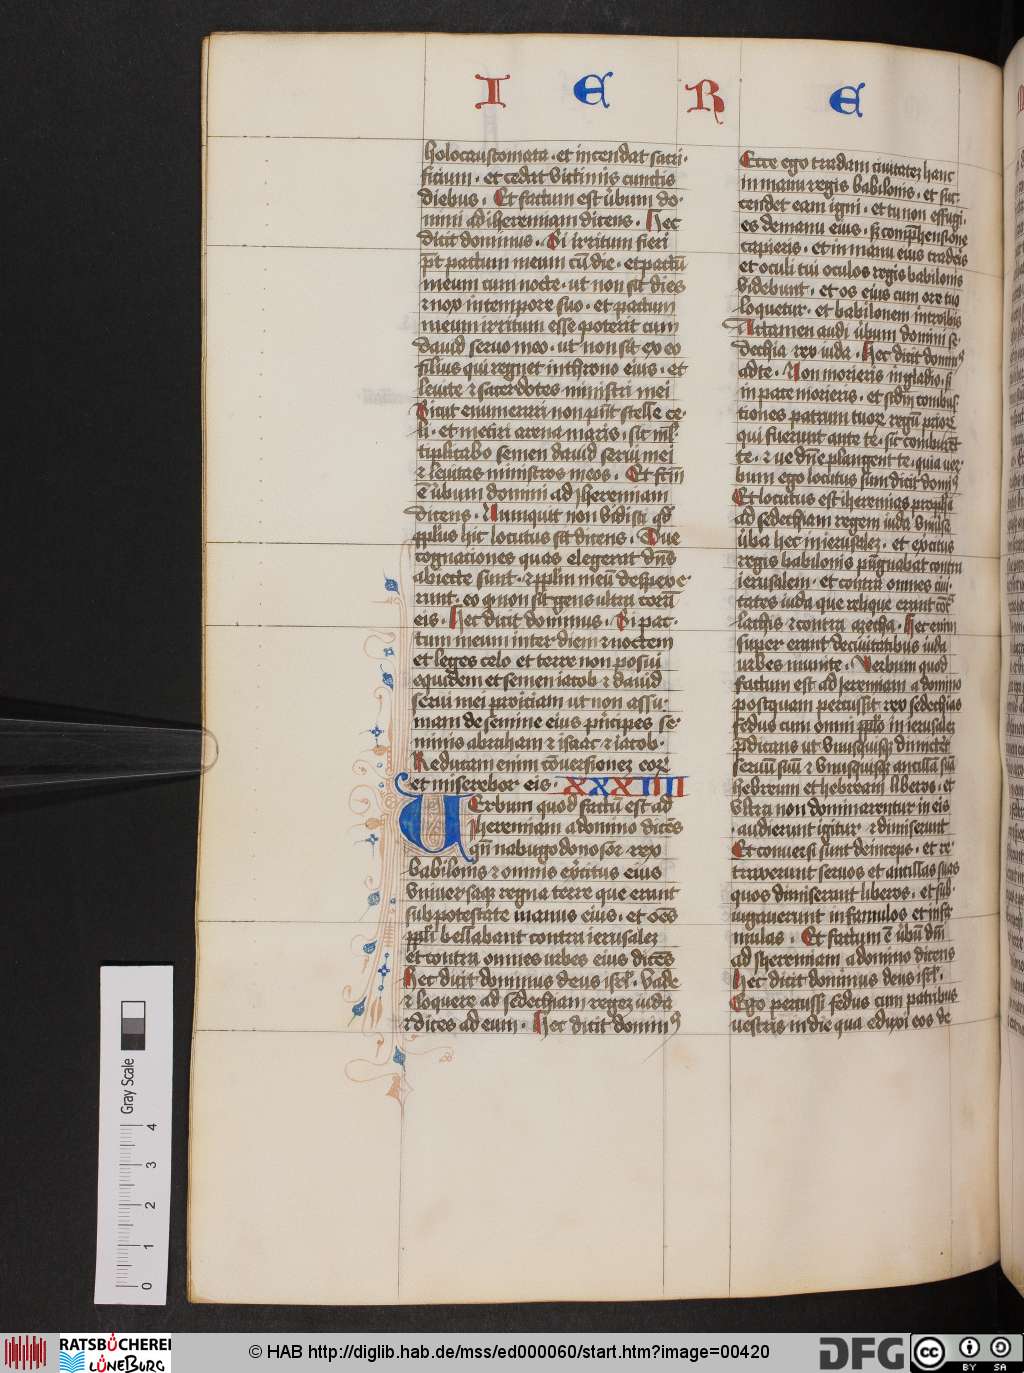 I E R E
holocaustomata · et incendat sacri·
ficium · et cedat victimis cunctis
diebus · Et factum est v̓bum do·
mini ad iheremiam dicens · Hec
dicit dominus · Si irritum fieri
pt̄ pactum meum cū die · et pactū
meum cum nocte · ut non sit dies
⁊ nox in tempore suo · et pactum
meum irritum esse poterit cum
david seruo meo · ut non sit ex eo
filius qui regnet in throno eius · et
leuite ⁊ sacerdotes ministri mei
Sicut enumerari non pn̄t stelle ce·
li · et metiri arena maris · sic ml̄·
tiplicabo semen david serui mei
⁊ leuitas ministros meos · Et fc̄m
ē v̓bum domini ad Jheremiam
dicens · Nunquit non vidisti qđ
pp̄lus hic locutus sit dicens · Due
cognationes quas elegerat dn̄s
abiecte sunt · ⁊ pp̄lm meū despexe·
runt · eo qꝫ non sit gens ultra corā
eis · Hec dicit dominus · Si pac·
tum meum inter diem ⁊ noctem
et leges celo et terre non posui
equidem et semen iacob ⁊ david
serui mei proiciam ut non assu·
mam de semine eius pͥncipes se·
minis abraham ⁊ isaac ⁊ iacob ·
Reducam enim cōuersionez eoꝝ
et miserebor eis · XXXIIII
VErbum quod factū est ad
Jheremiam a domino dicēs
qn̄ nabugodonosor rex
babilonis ⁊ omnis ex̓citus eius
vniuersaqꝫ regna terre que erant
sub potestate manus eius · et oēs
pp̄li bellabant contra ierusalez
et contra omnes urbes eius dicēs
Hec dicit dominus deus isrl̄ · Vade
⁊ loquere ad sedechiam regez iuda
⁊ dices ad eum · Hec dicit dominꝰ
Ecce ego tradam ciuitatez hanc
in manu regis babilonis · et suc·
cendet eam igni · et tu non effugi·
es de manu eius · sꝫ comp̓hensione
capieris · et in manu eius traderis
et oculi tui oculos regis babilonis
videbunt · et os eius cum ore tuo
loquetur · et babilonem introibis
Attamen audi v̓bum domini se·
dechia rex iuda · Hec dicit dominꝰ
ad te · Non morieris in gladio · sꝫ
in pace morieris · et scđm combus·
tiones patrum tuoꝝ regū prioꝝ
qui fuerunt ante te · sic comburēt
te · ⁊ ve dn̄e plangent te · quia ver·
bum ego locutus sum dicit dominꝰ
Et locutus est iheremias propheta
ad sedechiam regem iuda vniuersa
v̓ba hec in ierusalez · et ex̓citus
regis babilonis pūgnabat contra
ierusalem · et contra omnes ciui·
tates iuda que relique erant cōt̓
lachis ⁊ contra azecha · Hec enim
super erant de ciuitatibus iuda
urbes munite · Verbum quod
factum est ad Jeremiam a domino
postquam percussit rex sedechias
fedus cum omni pp̄lo in ierusalez
p̄dicans ut vnusquisqꝫ dimicteret
seruū suū ⁊ vnusquisqꝫ ancillā suā
hebreum et hebream liberos · et
vltra non dominarentur in eis
· audierunt igitur ⁊ dimiserunt
Et conuersi sunt deinceps · et re·
traxerunt seruos et ancillas suas
quos dimiserant liberos · et sub·
iugauerunt in famulos et in fa·
mulas · Et factum ē v̓bū dn̄i
ad iheremiam a domino dicens
Hec dicit dominus deus isrl̄ ·
Ego percussi fedus cum patribus
vestris in die qua eduxi eos de
Gray Scale
0 1 2 3 4
RATSBÜCHEREI
LÜNEBURG
© HAB http://diglib.hab.de/mss/ed000060/start.htm?image=00420
DFG
cc BY SA